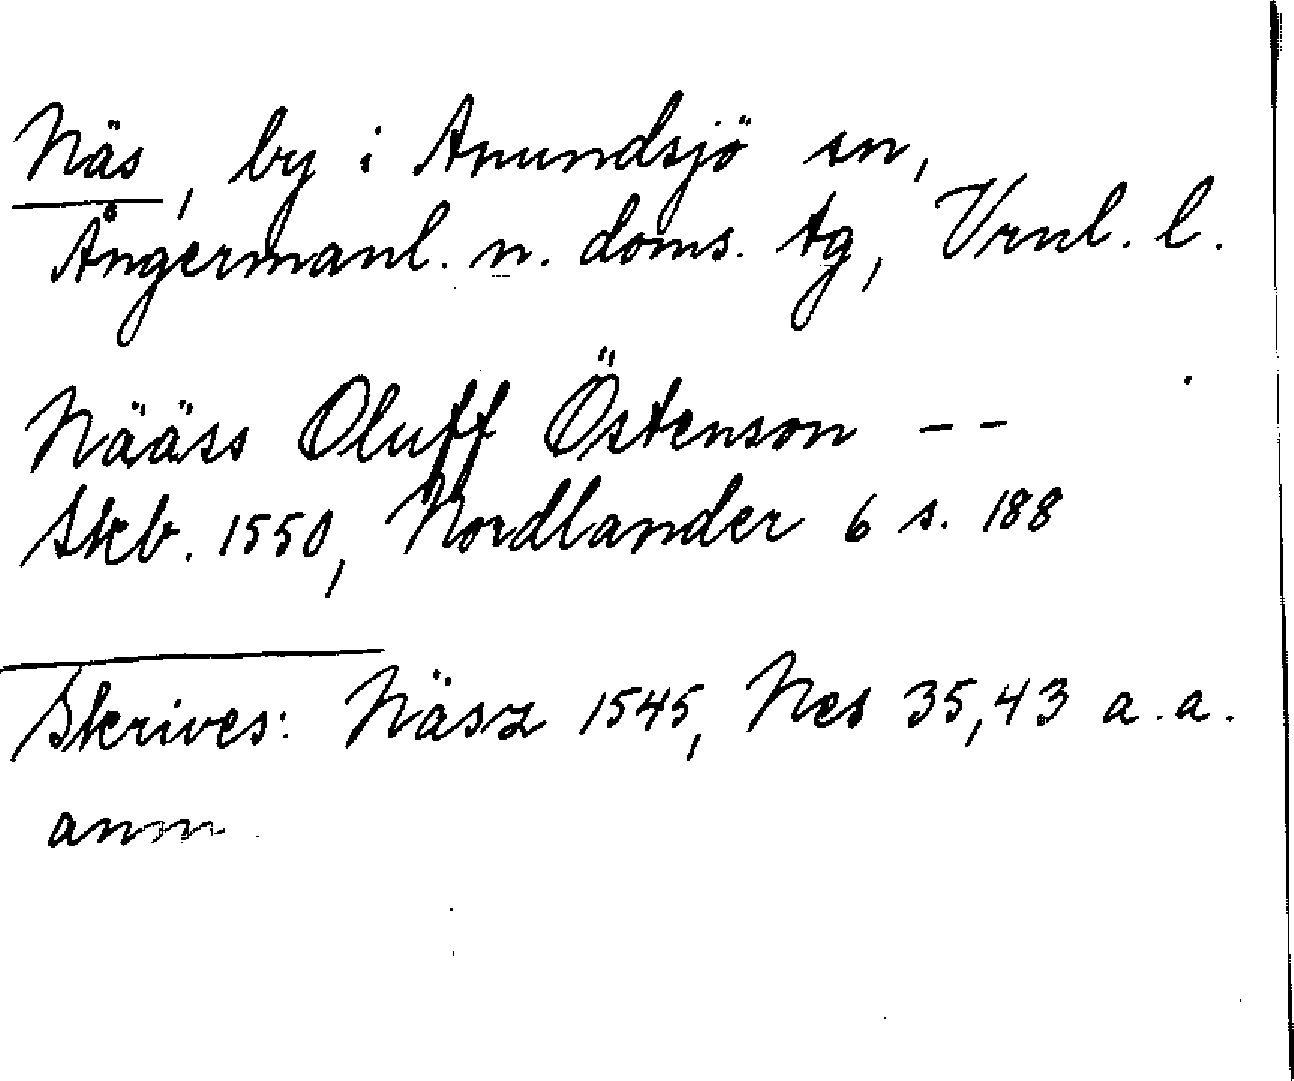 Näs, by i Anundsjö sn,
Ångermanl. n. doms. tg, Vrnl. l.
Nääss Oluff Östenson --
Skb. 1550, Nordlander 6 s. 188
Skrives: Näsz 1545, Nes 35,43 a.a.
anm